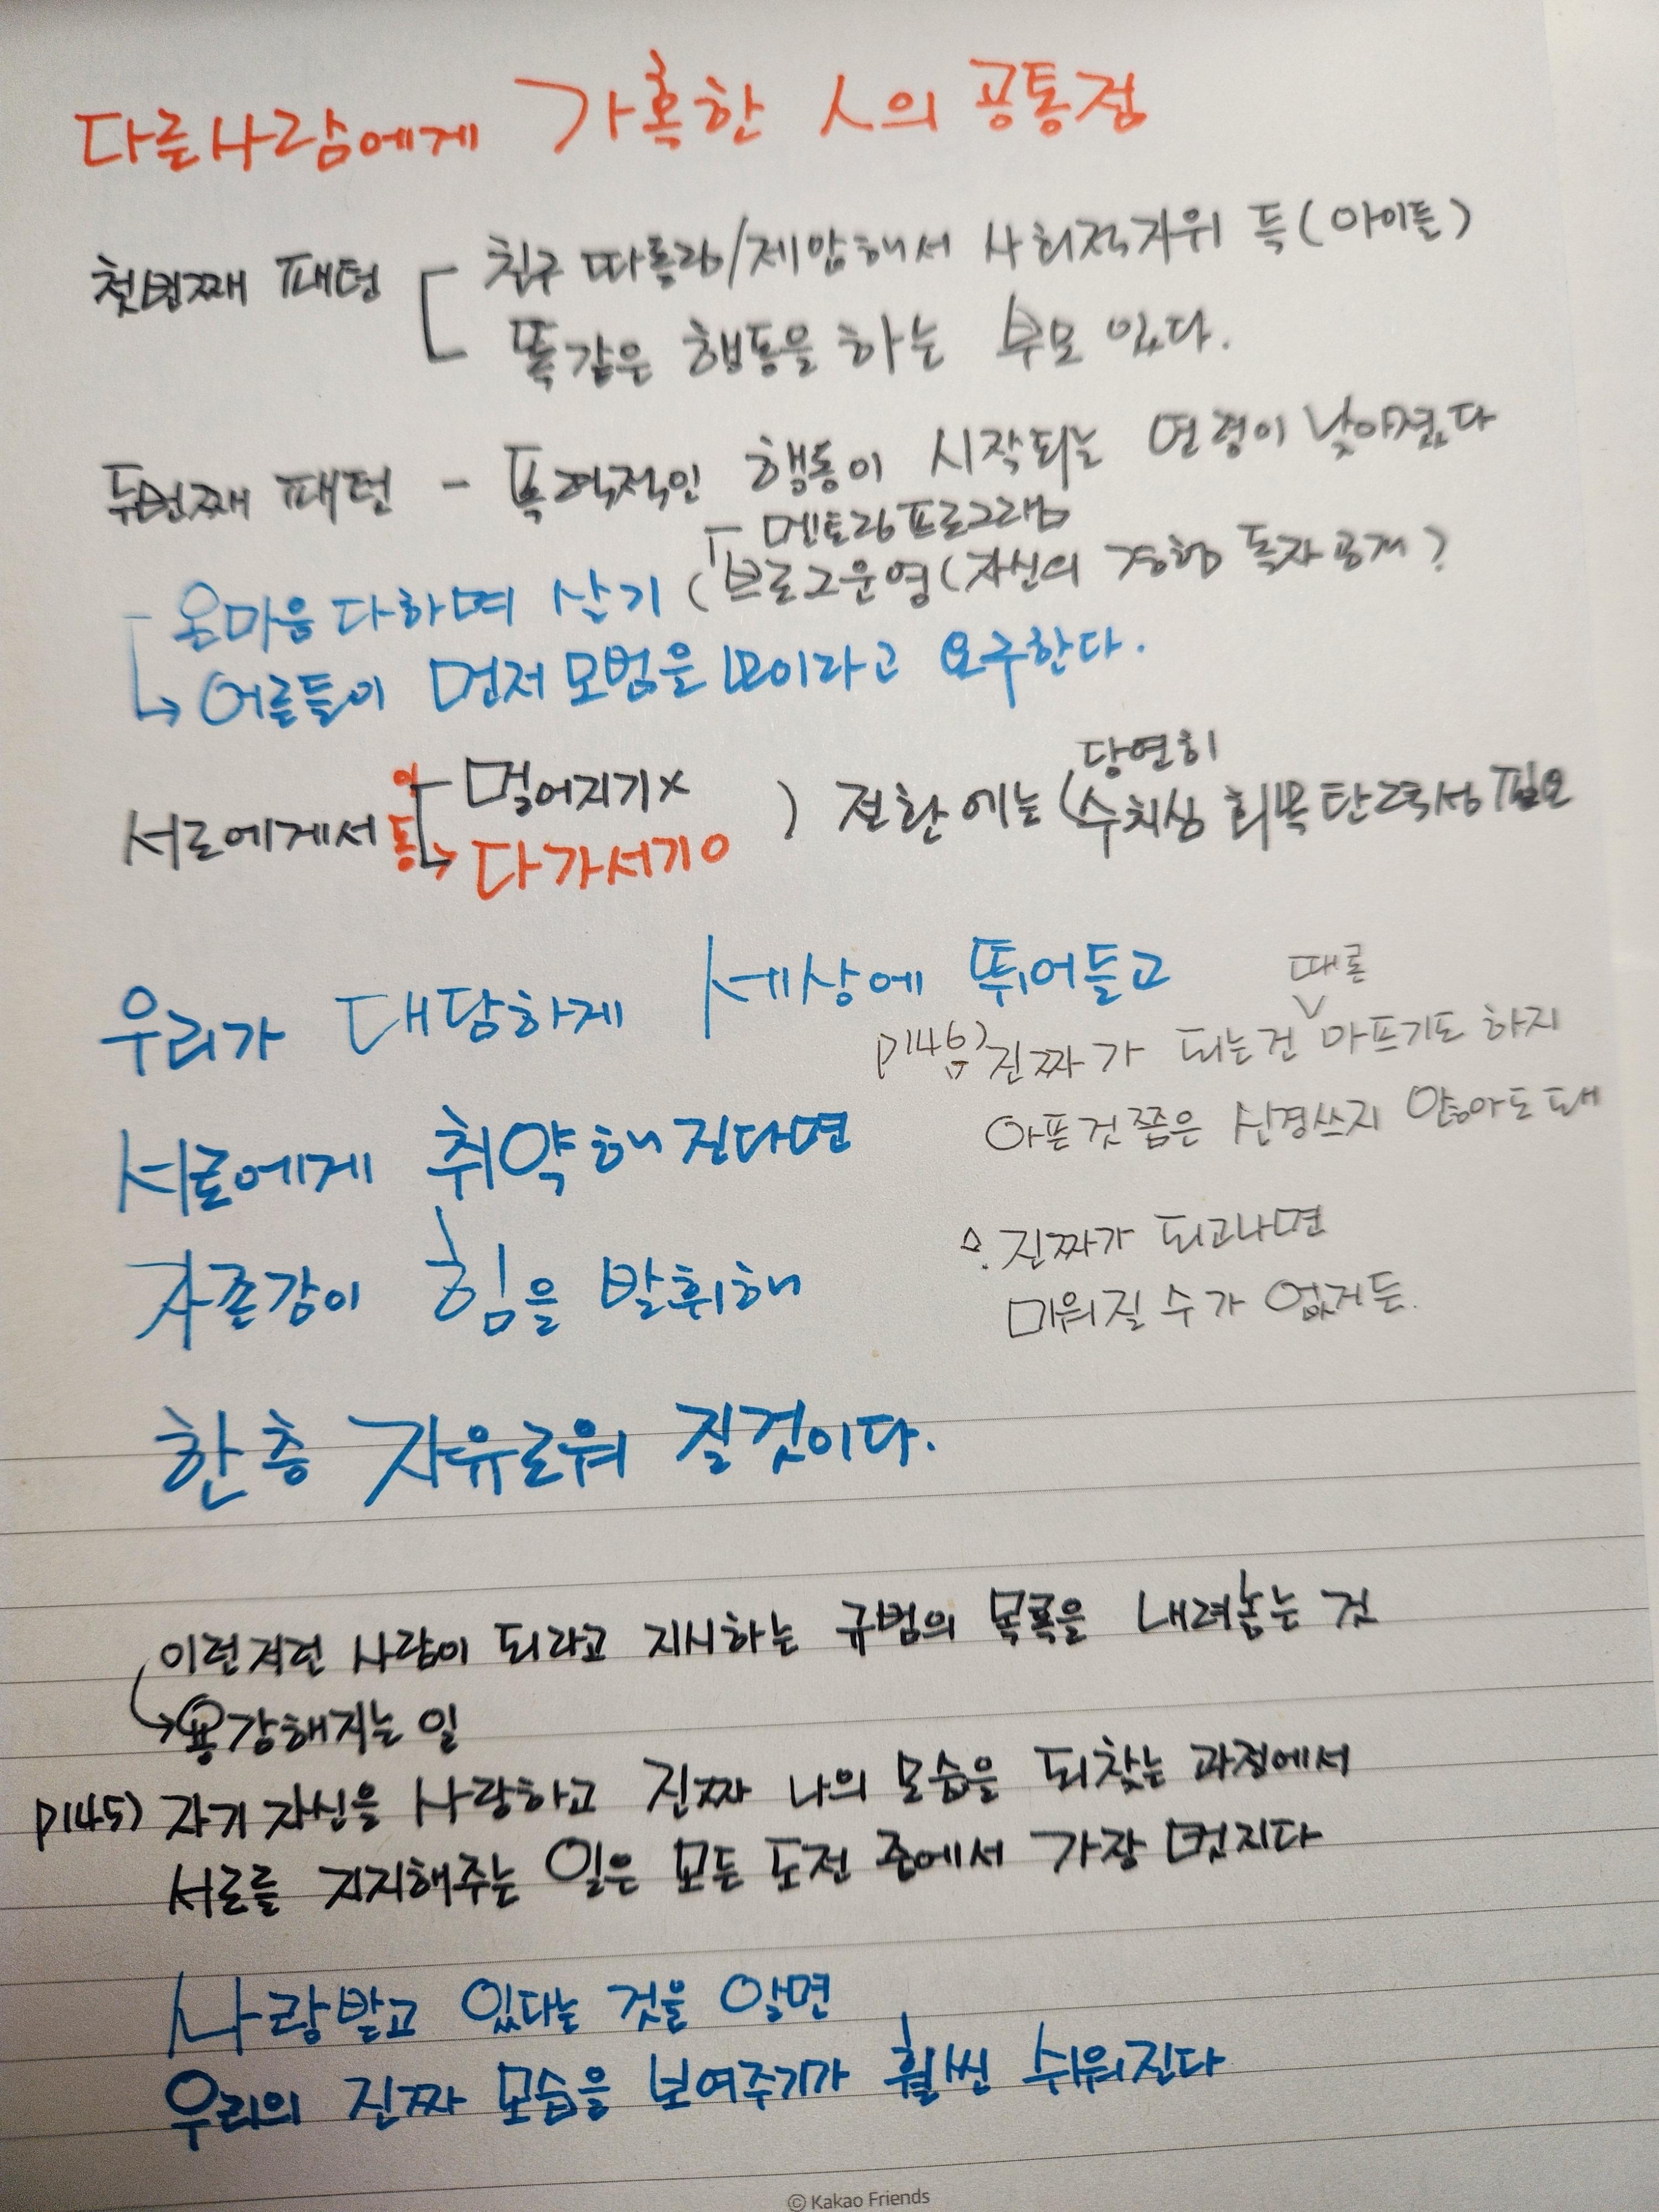 다른사람에게 가혹한 人의 공통점
첫번째 패턴 친구 따돌림/제압해서 사회적지위 득(아이들)
똑같은 행동을 하는 부모 있다.
두번째 패턴 - 폭력적인 행동이 시작되는 연령이 낮아졌다
멘토링프로그램
온마음 다하며 살기 (브로그운영(자신의 경험 독자공개?
→ 어른들이 먼저 모범을 보이라고 요구한다.
당연히
서로에게서 이동 멀어지기×
→ 다가서기○ ) 전환에는 (수치심 회복탄력성 필요
우리가 대담하게 세상에 뛰어들고
때론
p146) 진짜가 되는건 ∨ 아프기도 하지
아픈것쯤은 신경쓰지 않아도 돼
서로에게 취약해진다면
∴ 진짜가 되고나면
미워질 수가 없거든.
자존감이 힘을 발휘해
한층 자유로워 질것이다.
이런저런 사람이 되라고 지시하는 규범의 목록을 내려놓는 것
→ 용감해지는 일
p145) 자기 자신을 사랑하고 진짜 나의 모습을 되찾는 과정에서
서로를 지지해주는 일은 모든 도전 중에서 가장 멋지다
사랑받고 있다는 것을 알면
우리의 진짜 모습을 보여주기가 훨씬 쉬워진다
© Kakao Friends